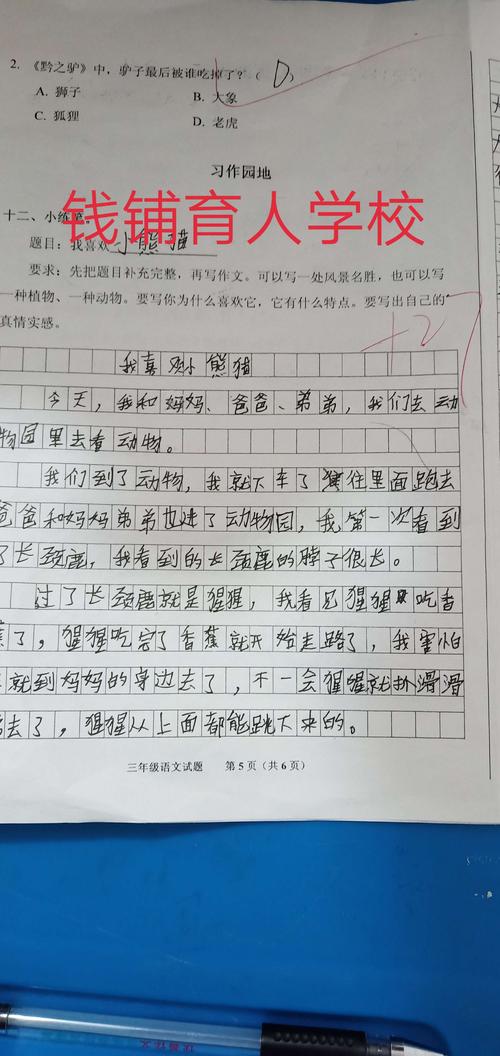 2. 《黔之驴》中，驴子最后被谁吃掉了？（ D ）
A. 狮子 B. 大象
C. 狐狸 D. 老虎
习作园地
钱铺育人学校
十二、小练笔。
题目：我喜欢小熊猫
要求：先把题目补充完整，再写作文。可以写一处风景名胜，也可以写
一种植物、一种动物。要写你为什么喜欢它，它有什么特点。要写出自己的
真情实感。
+27
我喜欢小熊猫
今天，我和妈妈、爸爸、弟弟，我们去动
物园里去看动物。
我们到了动物，我就下车了往里面跑去
爸爸和妈妈弟弟也进了动物园，我第一次看到
了长颈鹿，我看到的长颈鹿的脖子很长。
过了长颈鹿就是猩猩，我看见猩猩吃香
蕉了，猩猩吃完了香蕉就开始走路了，我害怕
就到妈妈的身边去了，不一会猩猩就扒滑滑
去了，猩猩从上面都能跳下来的。
三年级语文试题 第5页（共6页）